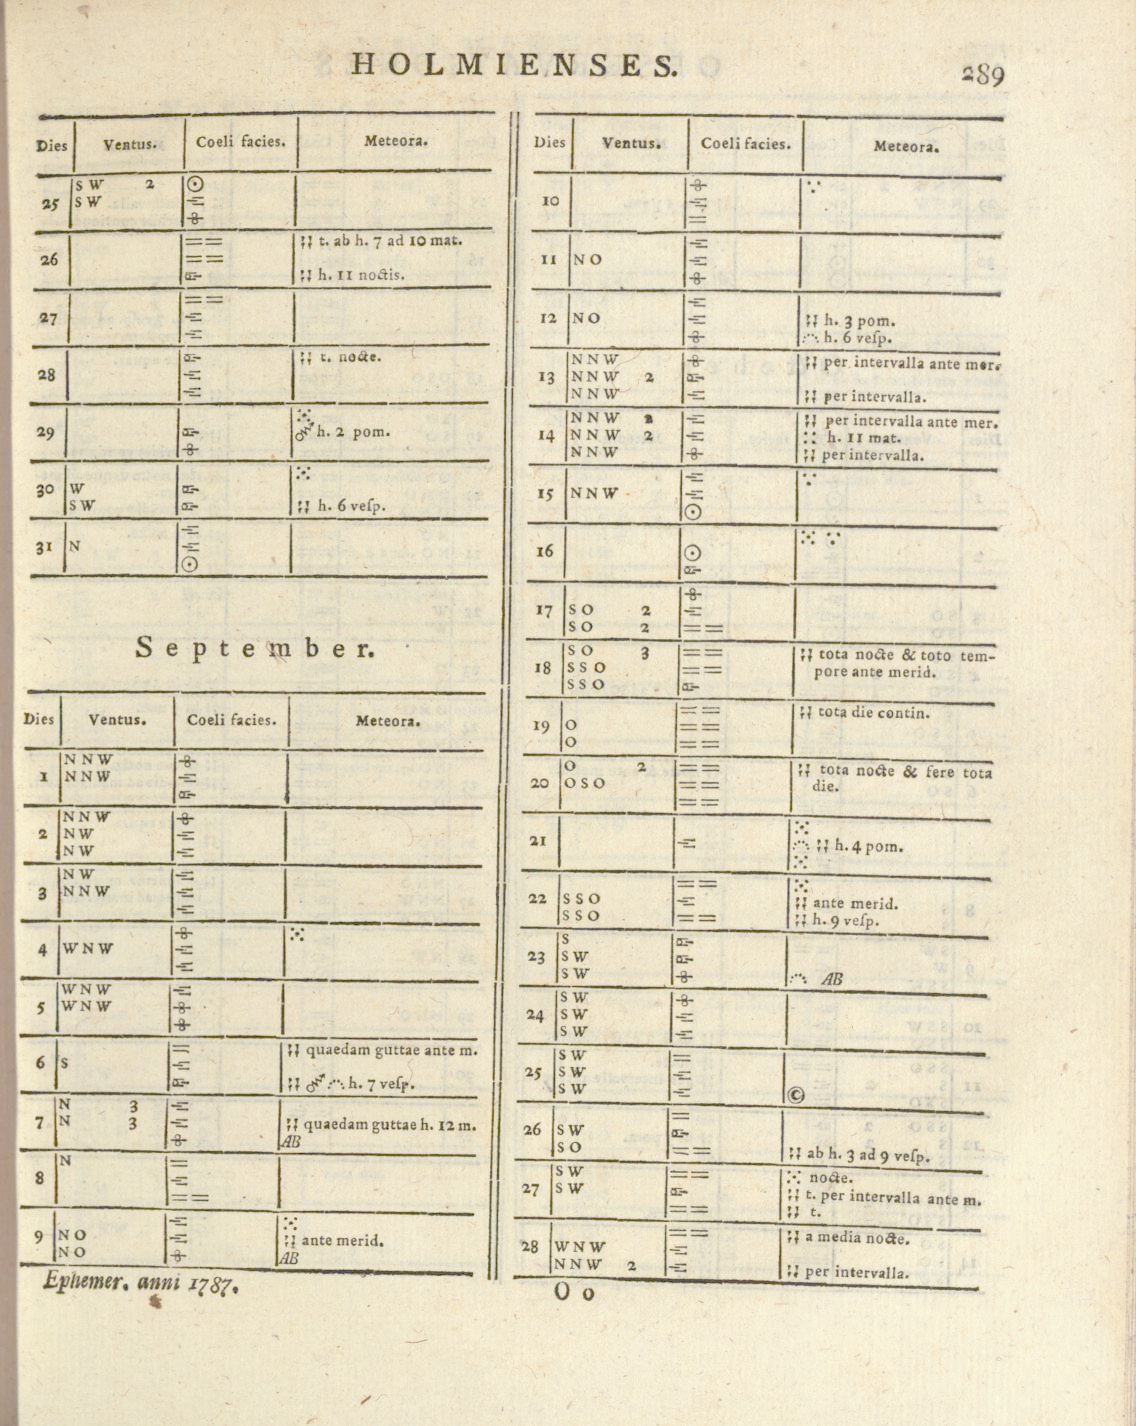 HOLMIENSES.
289
Dies Ventus. Coeli facies. Meteora.
25 SW 2
SW
26 t. ab h. 7 ad 10 mat.
h. 11 noctis.
27
28 t. nocte.
29 h. 2 pom.
30 W
SW h. 6 veſp.
31 N
September.
Dies Ventus. Coeli facies. Meteora.
1 NNW
NNW
2 NNW
NW
NW
3 NW
NNW
4 WNW
5 WNW
WNW
6 S quaedam guttae ante m.
h. 7 veſp.
7 N 3
N 3 quaedam guttae h. 12 m.
AB
8 N
9 NO ante merid.
NO AB
Ephemer. anni 1787.
Dies Ventus. Coeli facies. Meteora.
10
11 NO
12 NO h. 3 pom.
h. 6 veſp.
13 NNW per intervalla ante mer.
NNW 2
NNW per intervalla.
14 NNW 2 per intervalla ante mer.
NNW 2 h. 11 mat.
NNW per intervalla.
15 NNW
16
17 SO 2
SO 2
18 SO 3 tota nocte & toto tem-
SSO pore ante merid.
SSO
19 O tota die contin.
O
20 O 2 tota nocte & fere tota
OSO die.
21 h. 4 pom.
22 SSO ante merid.
SSO h. 9 veſp.
23 S
SW
SW AB
24 SW
SW
SW
25 SW
SW
SW ©
26 SW
SO ab h. 3 ad 9 veſp.
27 SW nocte.
SW t. per intervalla ante m.
t.
28 a media nocte.
WNW
NNW 2 per intervalla.
O o